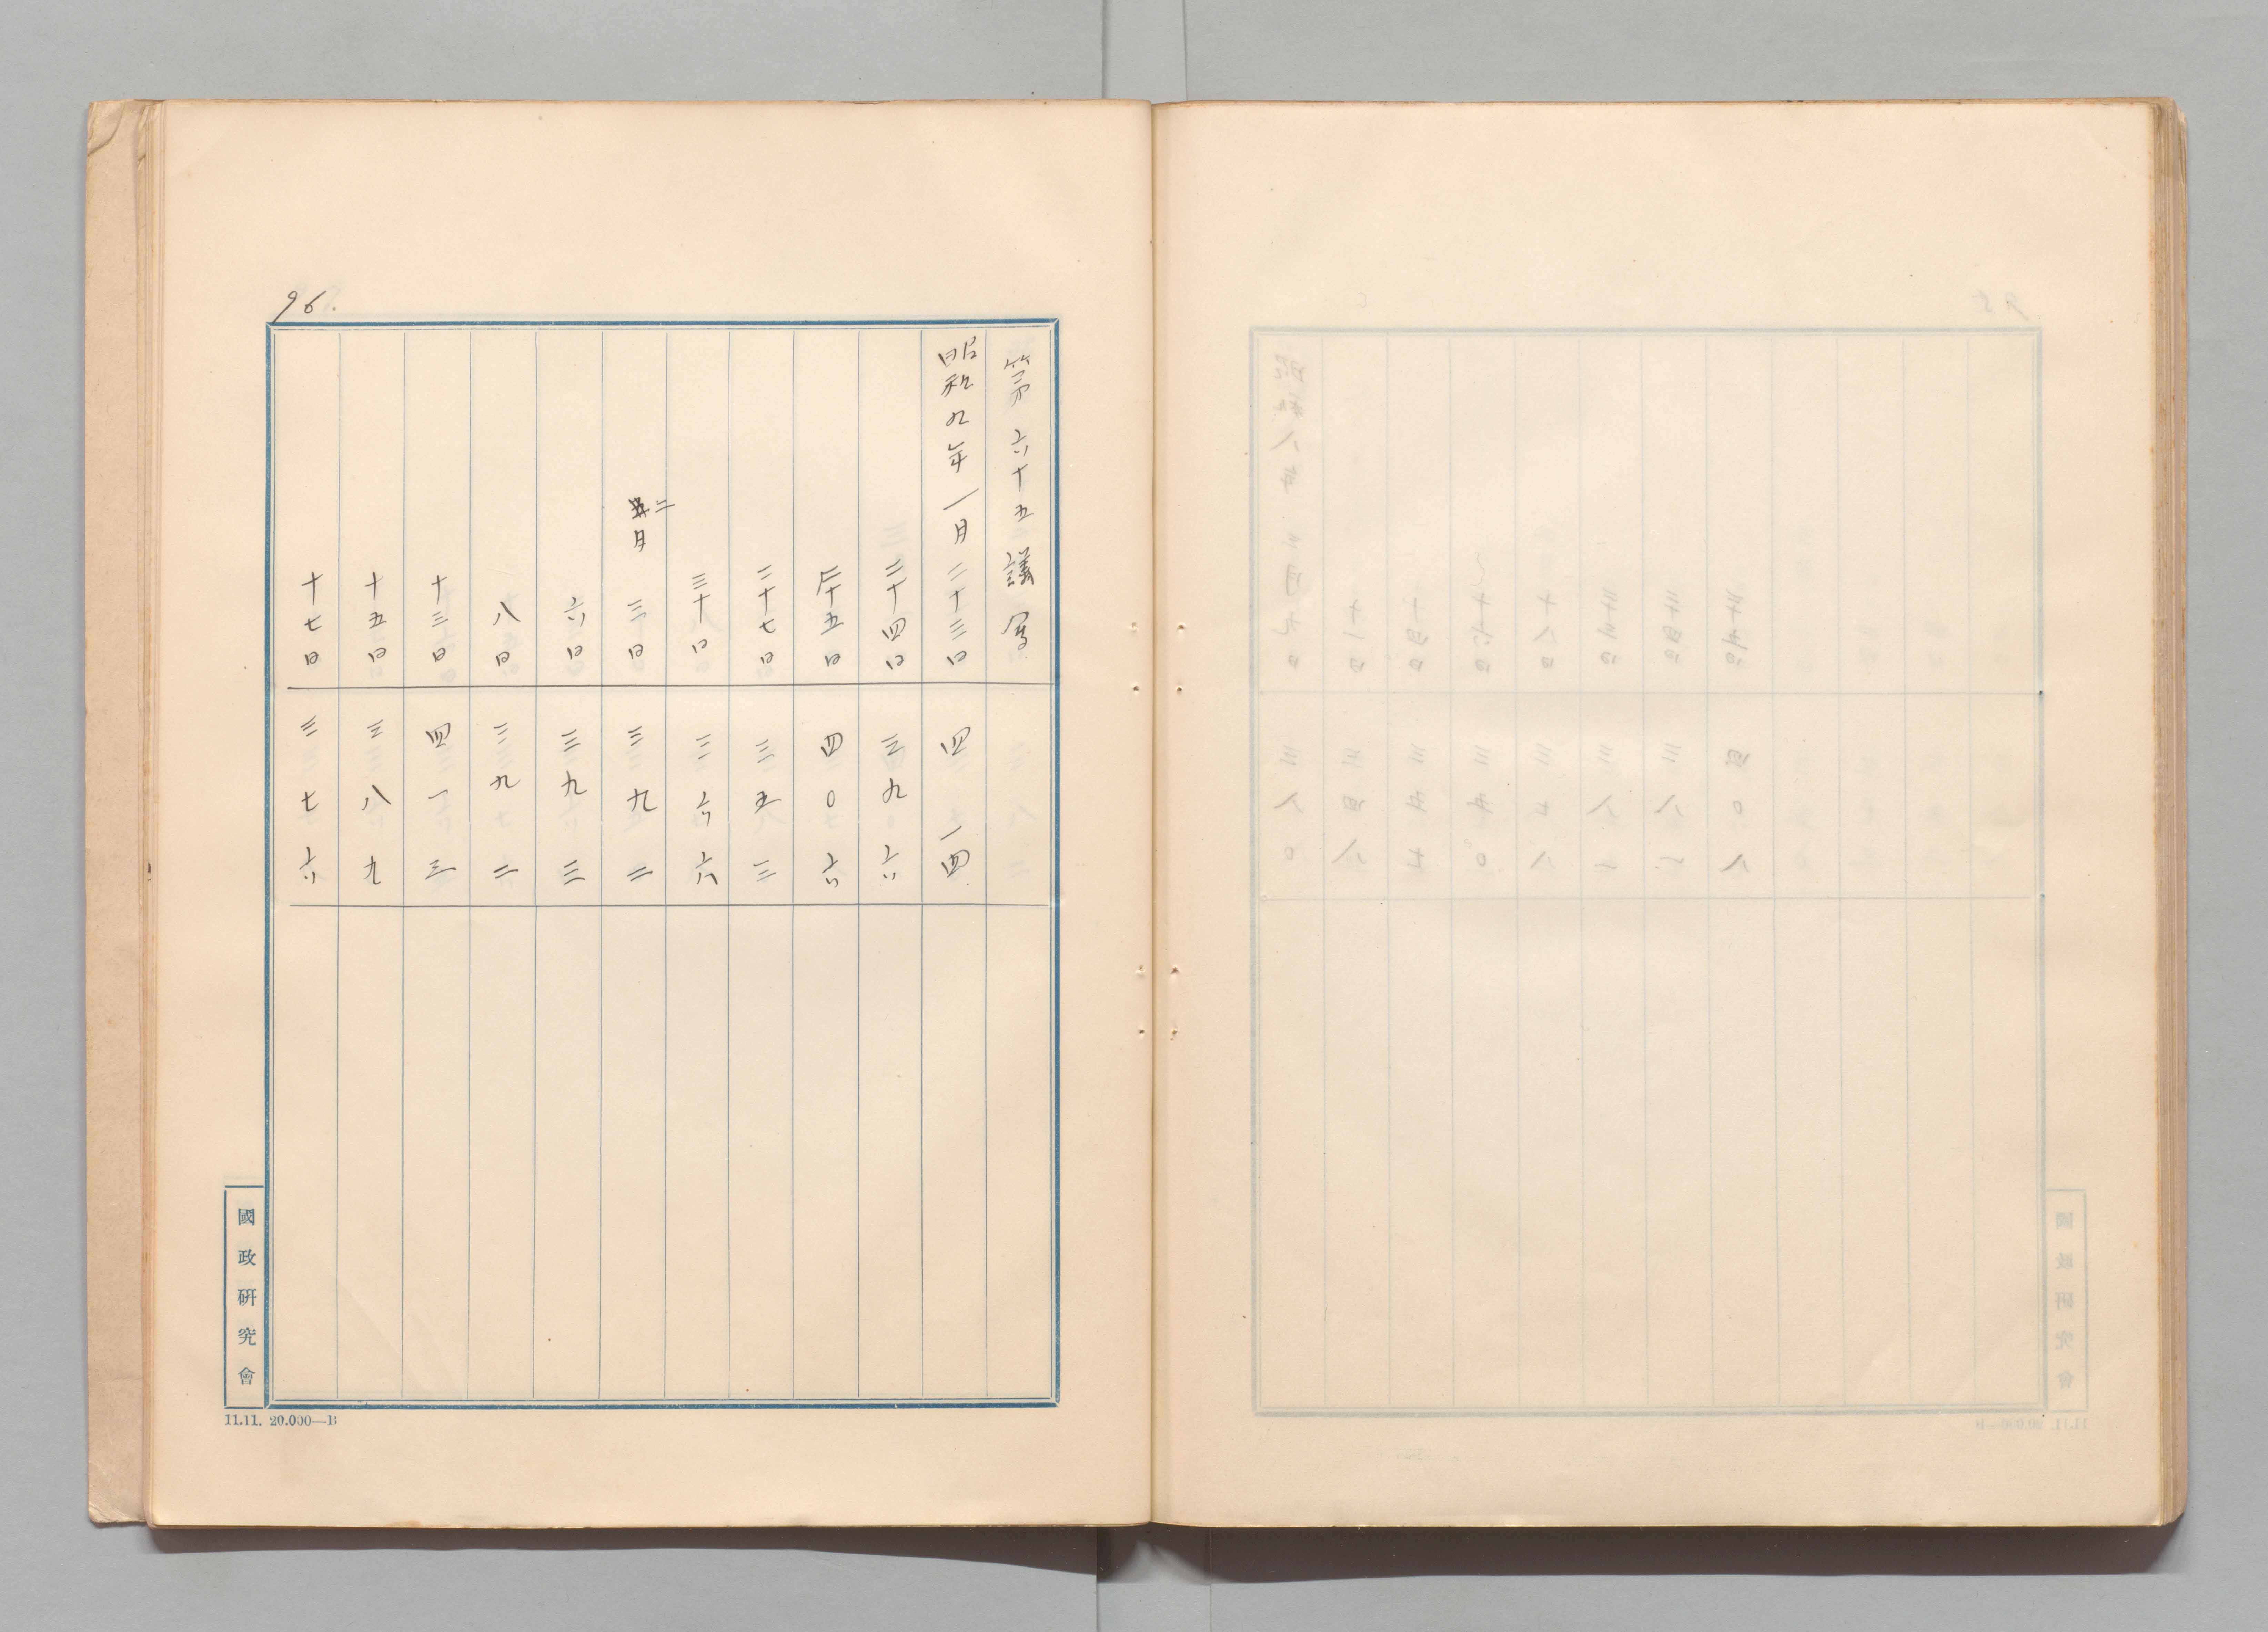 96.
第六十五議會
昭和九年一月二十三日 四一四
二十四日 三九六
二十五日 四〇六
二十七日 三五三
三十日 三六六
二月 三日 三九二
六日 三九三
八日 三九二
十三日 四一三
十五日 三八九
十七日 三七六
國政研究會
11.11. 20.000—B